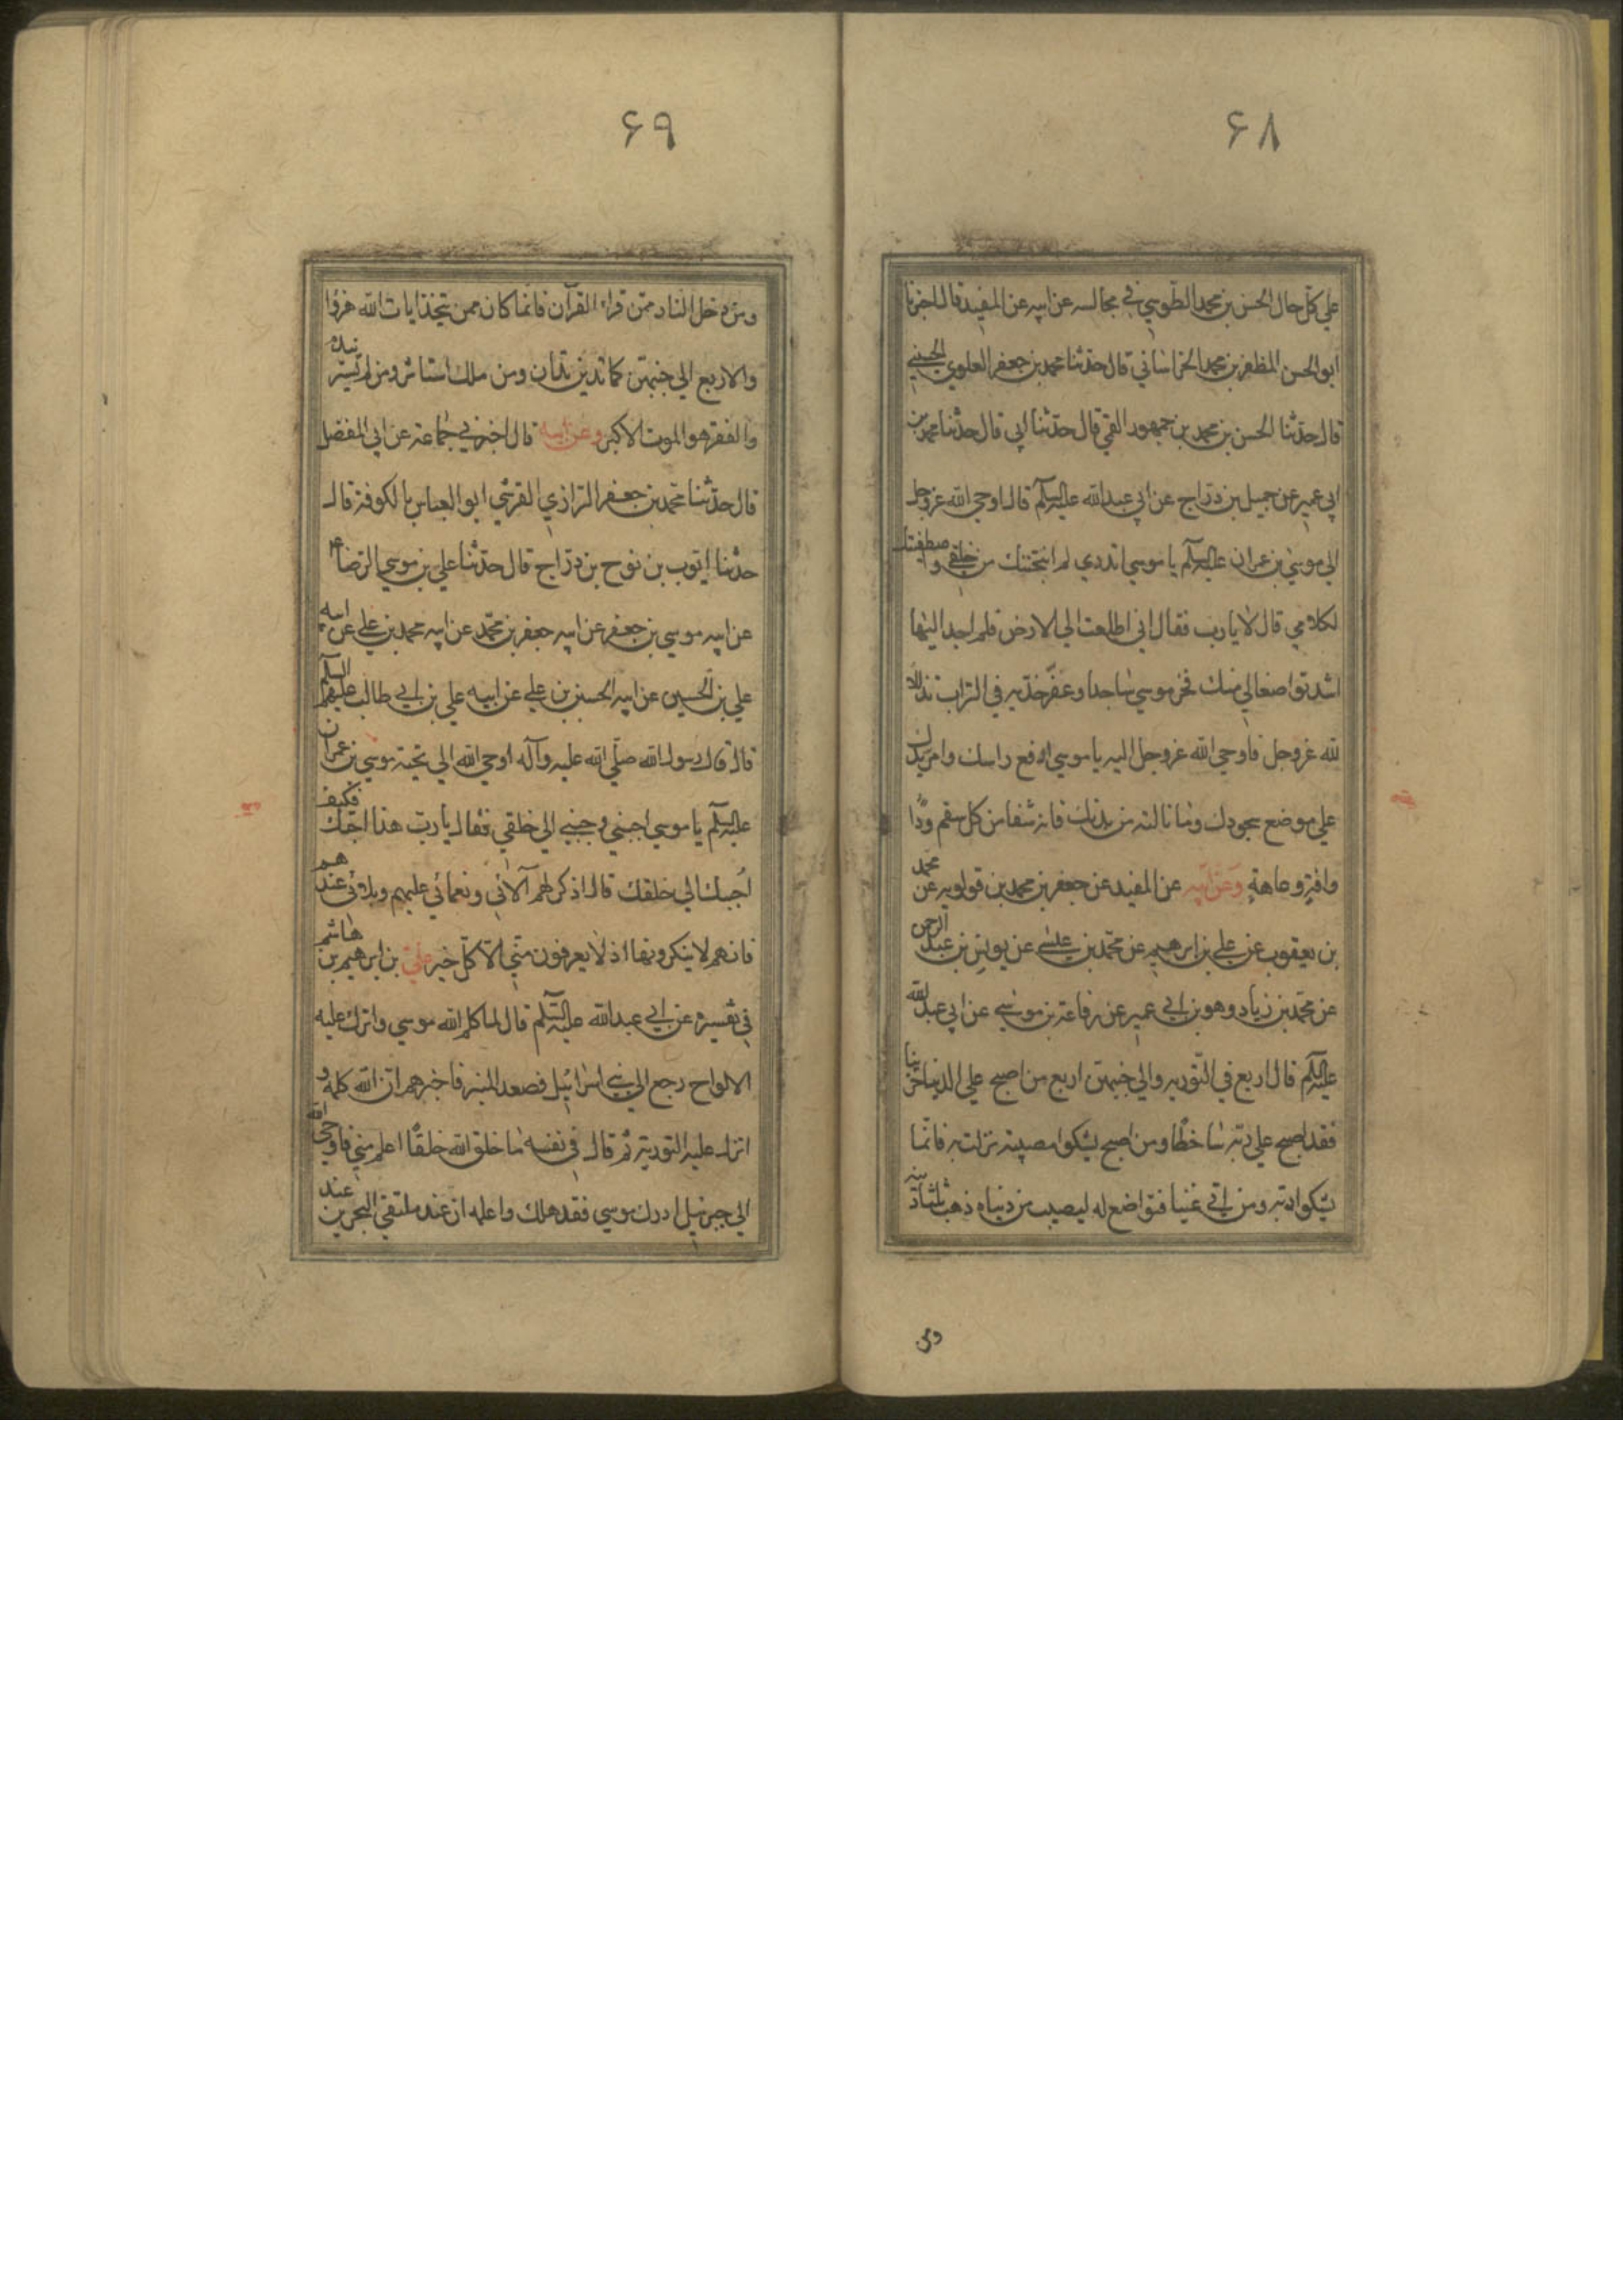 ۶۸
علي كلّ حال الحسن بن محمد الطّوسي في مجالسه عن ابيه عن المفيد قال اخبرنا
ابو الحسن المظفر بن محمد الخراساني قال حدّثنا محمد بن جعفر العلوي الحسيني
قال حدّثنا الحسن بن محمد بن جمهور القمي قال حدّثنا ابي قال حدّثنا محمد بن
ابي عمير عن جميل بن درّاج عن ابي عبد الله عليه السلم قال اوحي الله عزوجل
الي موسي بن عمران عليه السلم يا موسي اتدري لم انتجبتك من خلقي و اصطفيتك
لكلامي قال لا يا رب فقال اني اطلعت الي الارض فلم اجد اليها
اشد تواضعا لي منك فخر موسي ساجدا و عفّر خدّيه في التراب تذللا
لله عزوجل فاوحي الله عزوجل اليه يا موسي ارفع راسك وامر يدك
علي موضع سجودك وما نالته من بدنك فانه شفا من كل سقم و دًا
وافةٍ وعاهةٍ وعن ابيه عن المفيد عن جعفر بن محمد بن قولويه عن محمد
بن يعقوب عن علي بن ابرهيم عن محمّد بن عيسي عن يونس بن عبد الرحمن
عن محمّد بن زياد وهو بن ابي عمير عن رفاعة بن موسي عن ابي عبد الله
عليه السلم قال اربع في التورية والي جنبهن اربع من اصبح علي الدنيا حزينا
فقد اصبح علي ربّه ساخطًا ومن اصبح يشكوا مصيبة نزلت به فانما
يشكوا ربّه ومن اتي غنيا فتواضع له ليصيب من دنياه ذهب ثلثا دينه
ومن
۶۹
ومن دخل النار ممّن قراء القرآن فانّما كان ممن يتخذ ايات الله هزوا
والاربع الي جنبهن كما تدين تدان ومن ملك استاثر ومن لم يستشر يندم
والفقر هو الموت الاكبر وعن ابيه قال اخبرني جماعة عن ابي المفضل
قال حدّثنا محمّد بن جعفر الرزازي القرشي ابو العباس بالكوفة قال
حدثنا ايّوب بن نوح بن درّاج قال حدّثنا علي بن موسي الرضا ع
عن ابيه موسي بن جعفر عن ابيه جعفر بن محمّد عن ابيه محمد بن علي عن ابيه
علي بن الحسين عن ابيه الحسين بن علي عن ابيه علي بن ابي طالب عليهم السلم
قال قال رسول الله صلّي الله عليه وآله اوحي الله الي نجيّه موسي بن عمران
عليه السلم يا موسي احببني وحببني الي خلقي فقال يا ربّ هذا احبّك فكيف
اُحببك الي خلقك قال اذكر لهم آلائي ونعمائي عليهم وبلائي عندهم
فانهم لا ينكرونها اذ لا يعرفون منّي الّا كلّ خير عليّ بن ابرهيم بن هاشم
في تفسيره عن ابي عبد الله عليه السّلم قال لما كلم الله موسي وانزل عليه
الالواح رجع الي بني اسرائيل فصعد المنبر فاخبرهم انّ الله كلمه و
انزل عليه التورية ثم قال في نفسه ما خلق الله خلقًا اعلم مني فاوحي الله
الي جبرئيل ادرك موسي فقد هلك واعلمه ان عند ملتقي البحرين عند